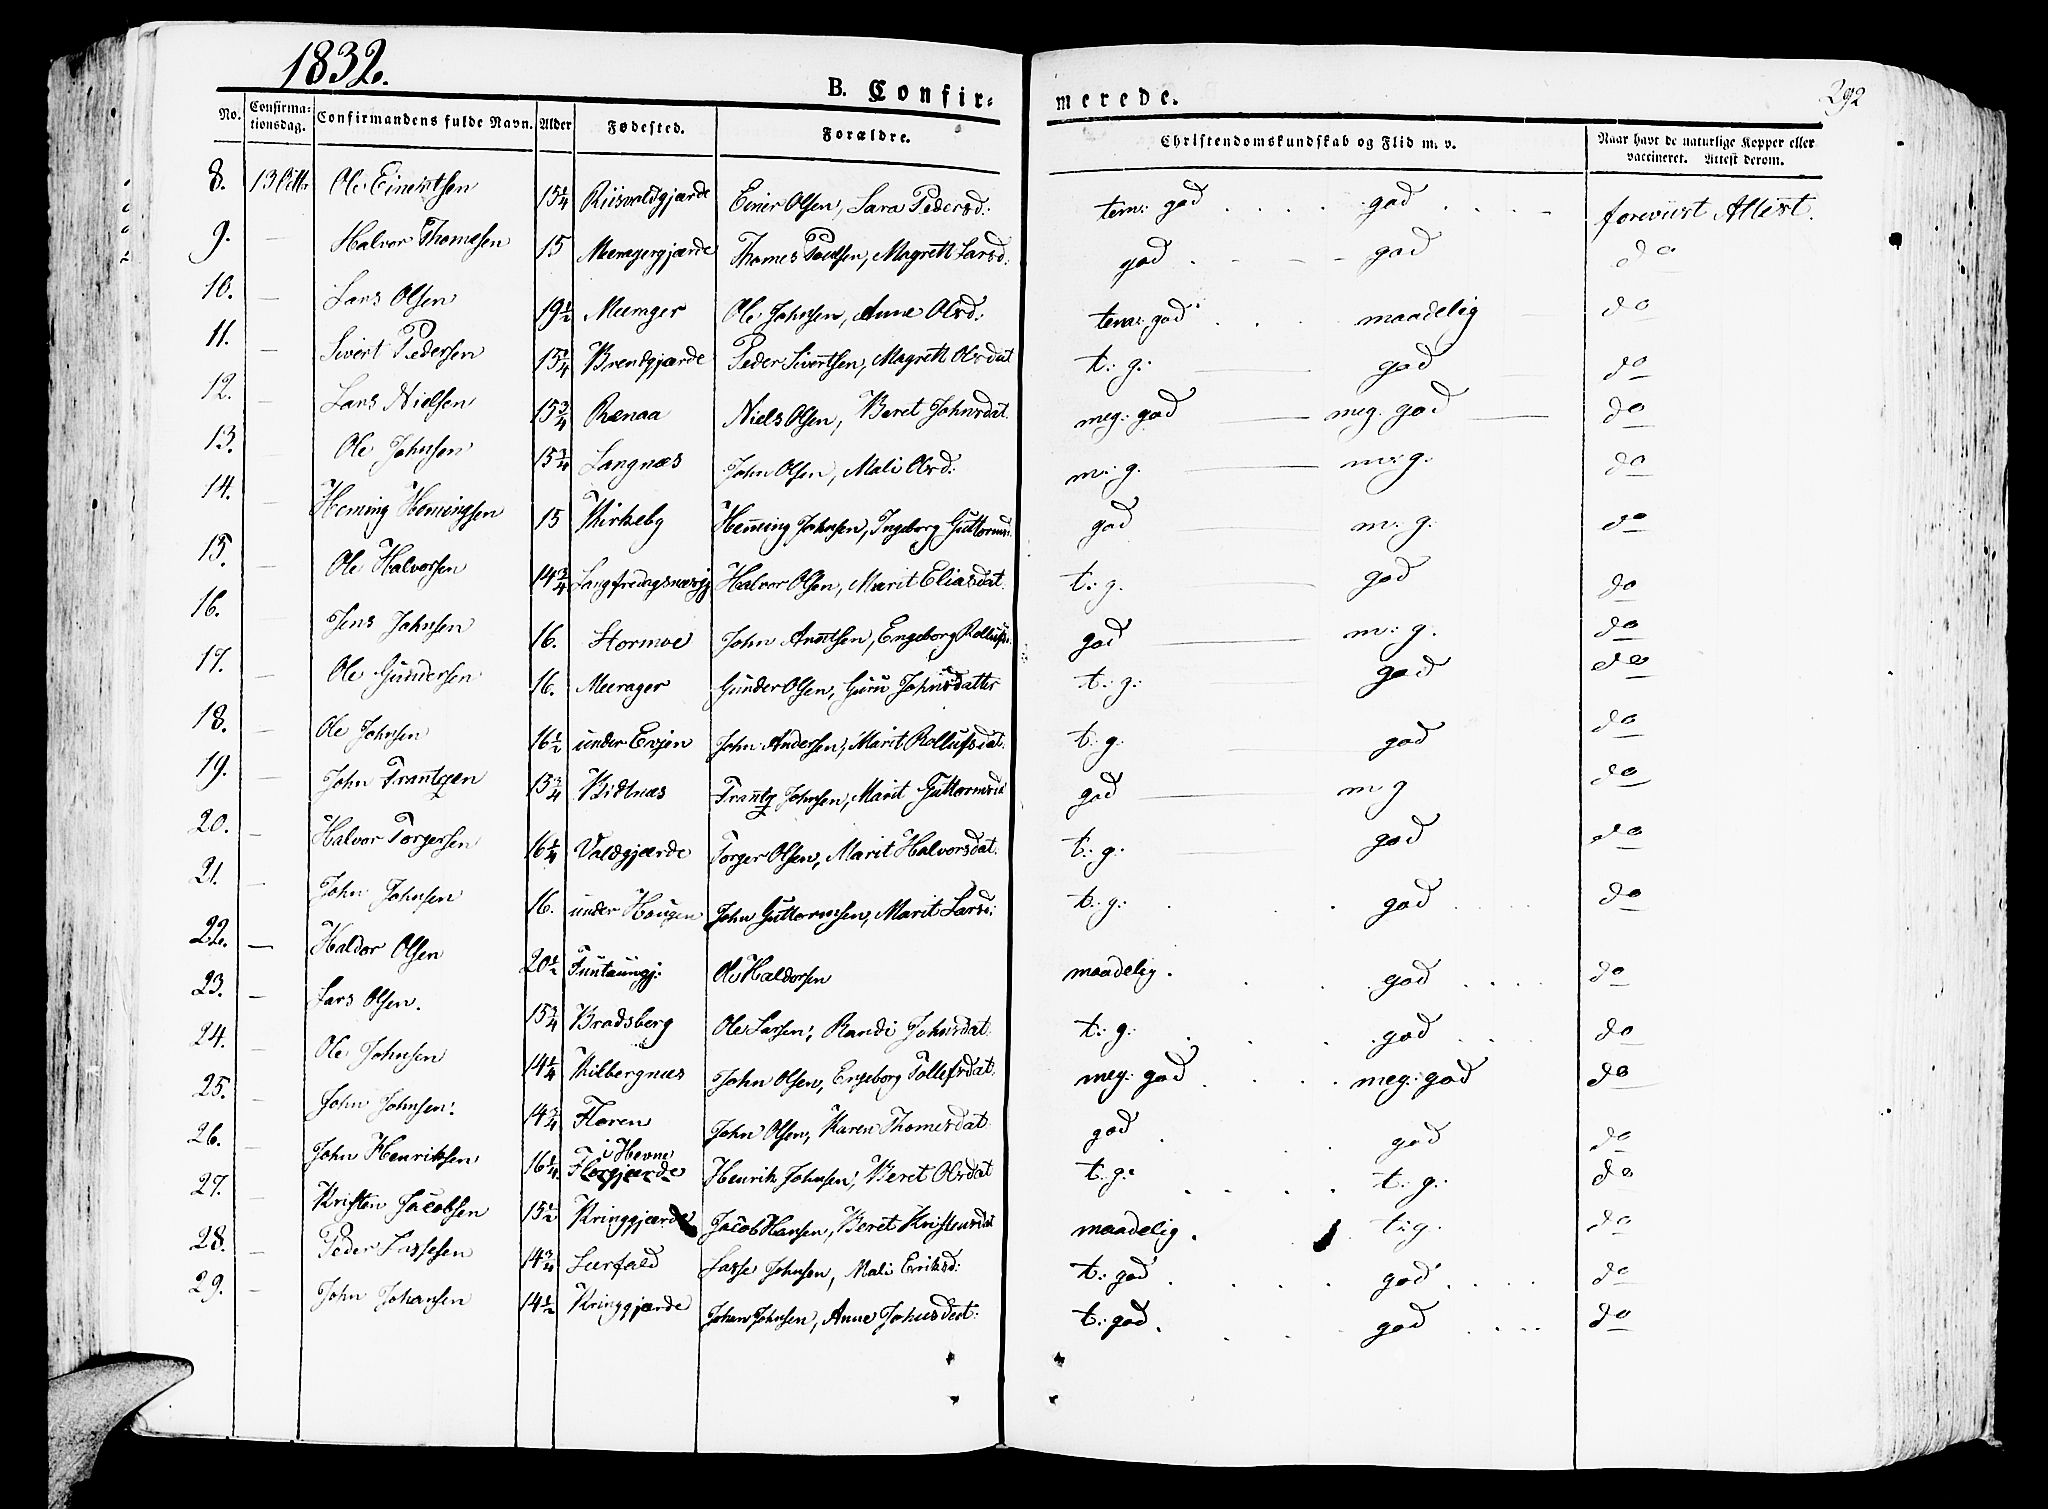 1832.
B. Confir-
merede.
292
No. Confirma-tionsdag. Confirmandens fulde Navn. Alder Fødested. Forældre. Christendomskundskab og Flid m. v. Naar havt de naturlige Kopper eller vaccineret. Attest derom.
8. 13 Octbr Ole Einertsen 15 1/4 Einer Olsen, Sara Pedersd: tem: god god foreviist Attest.
9. — Halvor Thomesen 15 Meeragergjærde Thomes Poulsen, Magrett Larsd: god god do
10. — Lars Olsen 19 1/2 Meerager Ole Johnsen, Anne Olsd: tem: god maadelig do
11. — Sivert Pedersen Brendgjærde Peder Sivertsen, Magrett Olsdat t: g: god do
12. — Lars Nielsen 15 3/4 Rænaa Niels Olsen, Beret Johnsdat. meg: god meg. god do
13. — Ole Johnsen 15 3/4 Langnæs John Olsen, Mali Olsd: m: g. m: g: do
14. — Heming Hemingsen 15 Kirkeby Heming Johnsen, Ingeborg Guttormsd: god m: g: do
15. — Ole Halvorsen 14 3/4 Langfredagsnæsgj Halvor Olsen, Marit Eliasdat. t: g. god do
16. Jens Johnsen 16. Stormoe John Arntsen, Engeborg god m: g. do
17. — Ole Gundersen 16. Meerager Gunder Olsen, Guru Johnsdatter t: g: god do
18. — Ole Johnsen 16 1/2 under Evjen John Andersen, Marit Rollufsdat. t: g: god do
19. — John Frantzen 15 3/4 Bidtnæs Frantz Johnsen, Marit Guttormsd god m: g do
20. — Halvor Torgersen 16 1/4 Valdgjærde Torger Olsen, Marit Halvorsdat. t: g: god do
21. — John Johnsen 16. under Hougen John Guttormsen, Marit Larsd: t: g: god do
22. — Haldor Olsen 20 1/2 Funtaungj: Ole Haldorsen maadelig. god do
23. — Lars Olsen. 15 3/4 Bradsberg Ole Larsen, Randi Johnsdat. t: g: god do
24. — Ole Johnsen 14 1/4 Kilbergnæs John Olsen, Engeborg Tollefsdat. meg: god meg: god do
25. — John Johnsen. 14 3/4 Floren John Olsen, Karen Thomesdat. god god do
26. — John Henriksen 16 1/4 i Hevne Florgjærde Henrik Johnsen, Beret Olsdat t: g: t: g: do
27. — Kristen Jacobsen 15 1/2 Kringgjærde Jacob Hansen, Beret Kristensdat maadelig. t: g. do
28. — Peder Lassesen 14 3/4 Lurfald Lasse Johnsen, Mali Eriksd: t: god god do
29. — John Johansen 14 1/2 Kringgjærde Johan Johnsen, Anne Johnsdat: t: god. god do